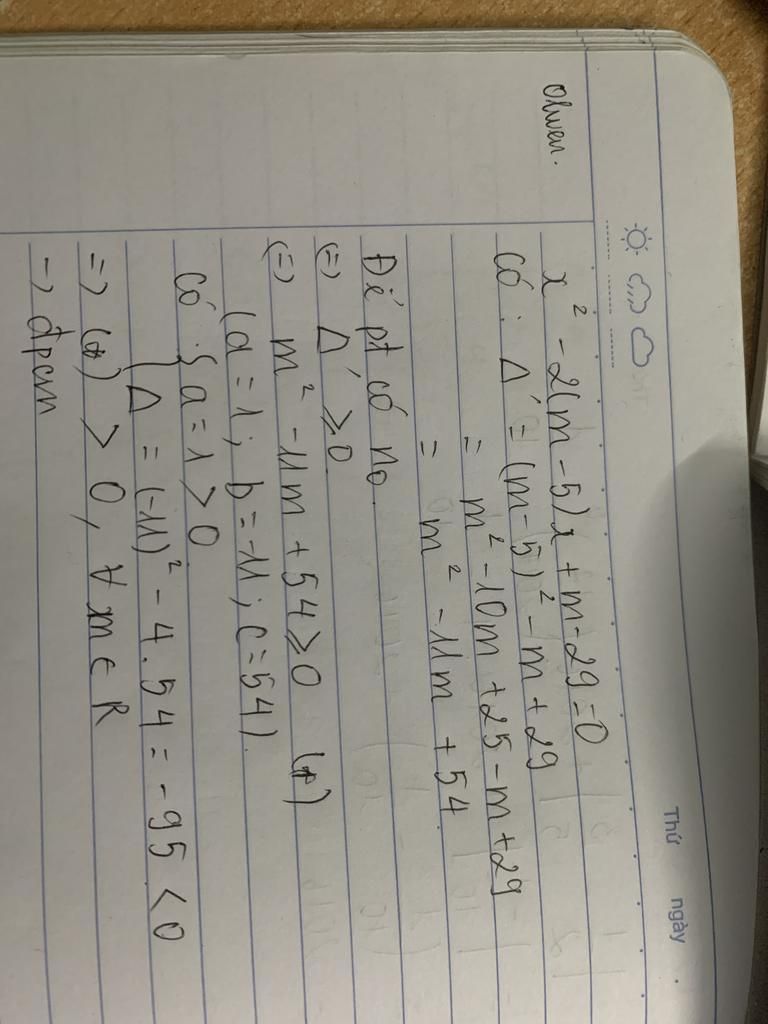 Thứ ngày
Olwen.
x² - 2(m - 5)x + m - 29 = 0
Có : Δ' = (m - 5)² - m + 29
= m² - 10m + 25 - m + 29
= m² - 11m + 54
Để pt có no
(=) Δ' ≥ 0
(=) m² - 11m + 54 ≥ 0 (*)
(a = 1 ; b = -11 ; c = 54).
Có : { a = 1 > 0
Δ = (-11)² - 4.54 = -95 < 0
=> (*) > 0, ∀ m ∈ R
-> đpcm